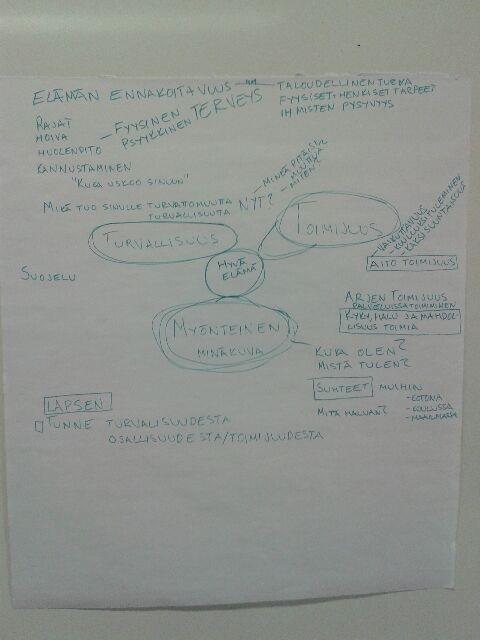 ELÄMÄN ENNAKOITAVUUS
TALOUDELLINEN TURVA
FYYSISET, HENKISET TARPEET
IHMISTEN PYSYVYYS
RAJAT
HOIVA
HUOLENPITO
FYYSINEN
PSYYKKINEN
TERVEYS
KANNUSTAMINEN
"KUKA USKOO SINUUN"
MIKÄ TUO SINULLE TURVATTOMUUTTA
TURVALLISUUTTA
NYT?
- MINKÄ PITÄISI
- MUUTTUA
- MITEN
TURVALLISUUS
TOIMIJUUS
HYVÄ
ELÄMÄ
SUOJELU
VAIKUTTAVUUS
- KUULLUKSI TULEMINEN
- KAKSISUUNTAISUUS
AITO TOIMIJUUS
ARJEN TOIMIJUUS
PALVELUISSA TOIMIMINEN
KYKY, HALU JA MAHDOL-
LISUUS TOIMIA
MYÖNTEINEN
MINÄKUVA
KUKA OLEN?
MISTÄ TULEN?
SUHTEET MUIHIN
MITÄ HALUAN?
- KOTONA
- KOULUSSA
- MAAILMASSA
LAPSEN
TUNNE TURVALISUUDESTA
OSALLISUUDESTA/TOIMIJUUDESTA